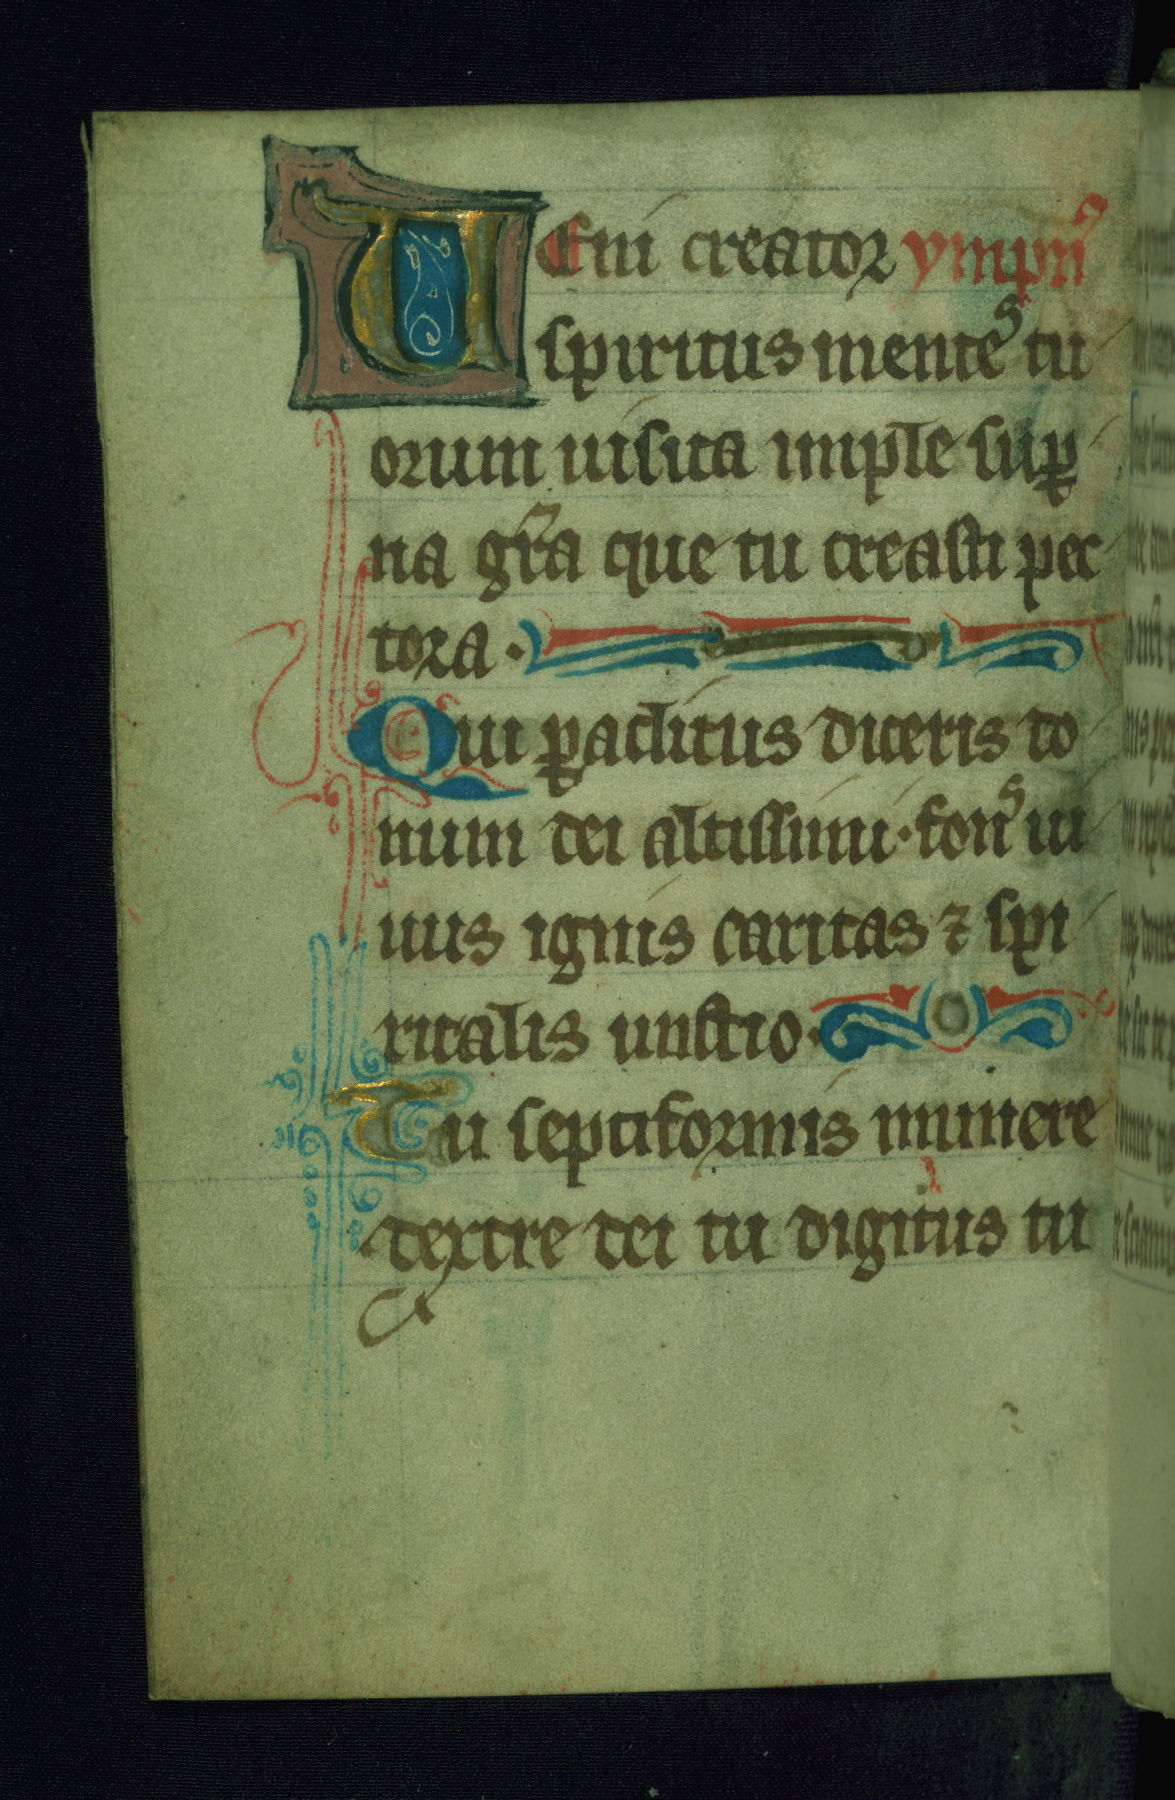 UEni creator ympnꝰ
spiritus menteˢ tu
orum uisita imple suꝑ
na gr̃a que tu creasti pec
tora ·
Qui ꝑaclitus diceris do
num dei altissimi · fonˢ ui
uus ignis caritas ⁊ spi
ritalis unctio ·
Tu septiformis munere
dextre dei tu digitus tu